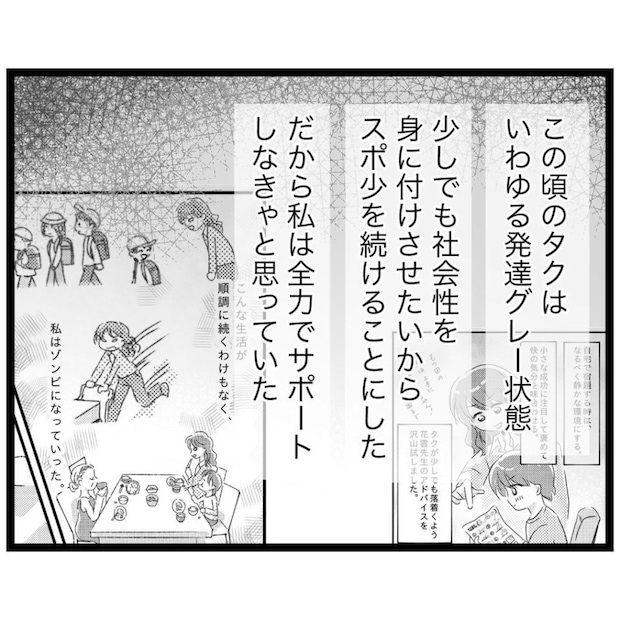 この頃のタクは
いわゆる発達グレー状態
少しでも社会性を
身に付けさせたいから
スポ少を続けることにした
だから私は全力でサポート
しなきゃと思っていた
自宅で宿題する時は、
なるべく静かな環境にする。
小さな成功に注目して褒めて
快の気分を
タクが少しでも落着くよう
花雲先生のアドバイスを
沢山試しました。
こんな生活が
順調に続くわけもなく、
私はゾンビになっていった。